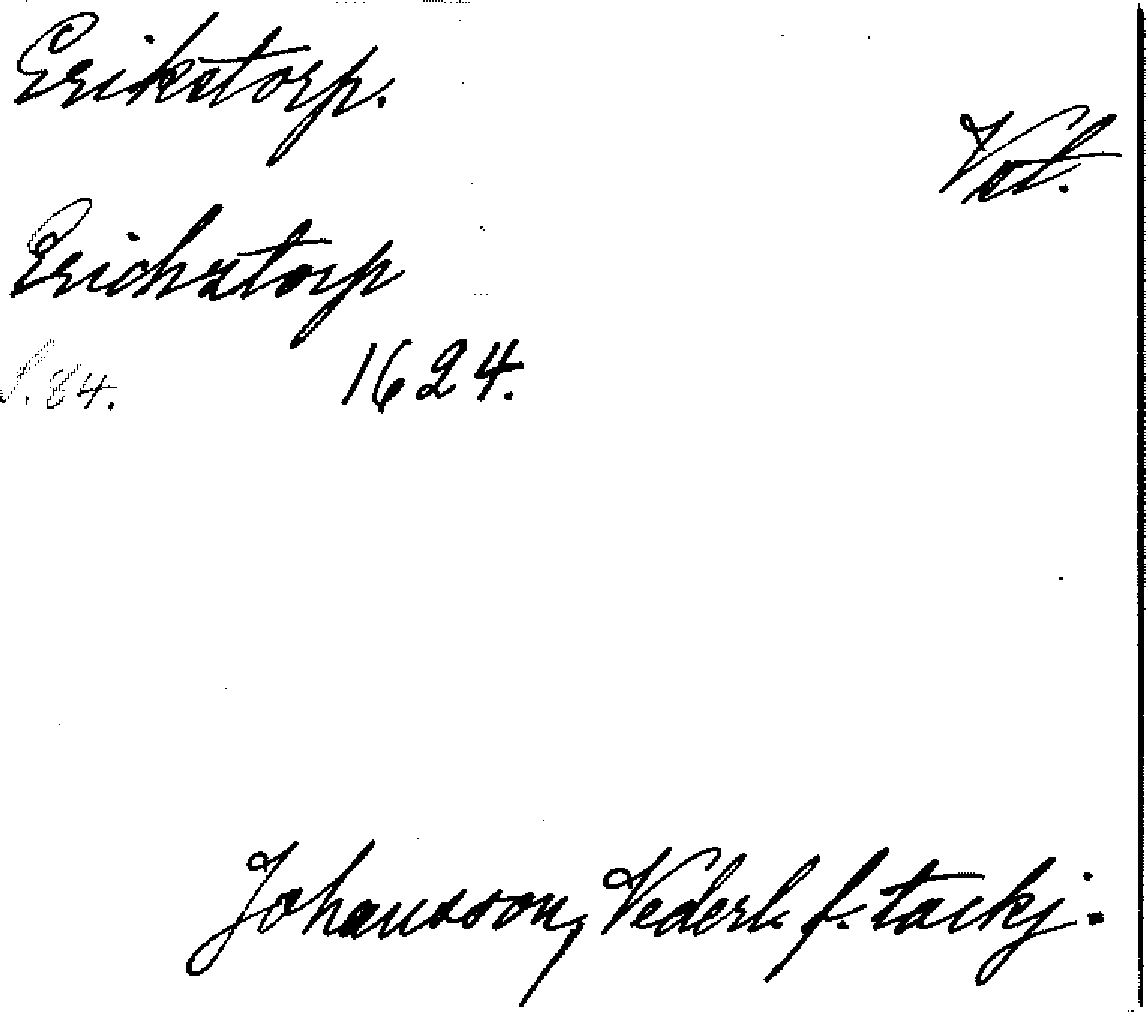 Erikstorp.
Vet.
Erichstorp
S. 84. 1624.
Johansson, Vederl. f. tackj.